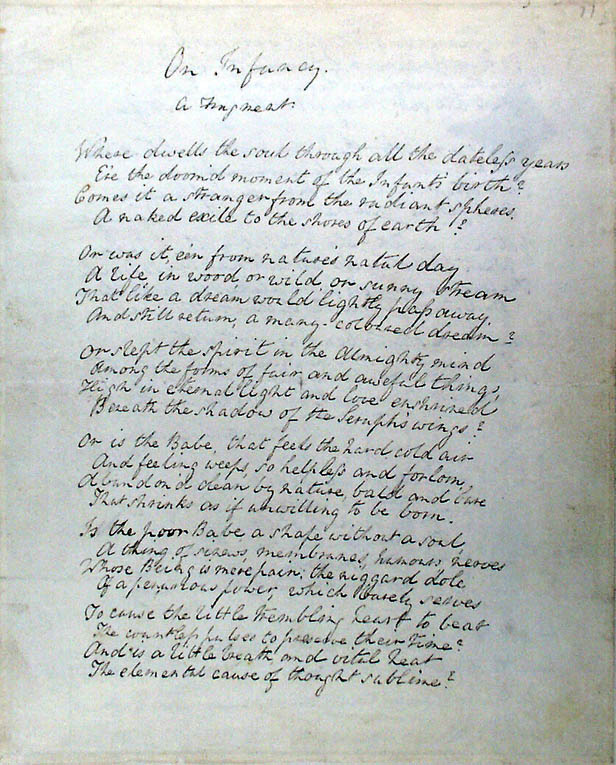 On Infancy.
A Fragment
Where dwells the soul through all the dateless years
Ere the doom'd moment of the Infants birth?
Comes it a stranger from the radiant spheres,
A naked exile to the shores of earth!?
Or was it, e'en from nature's natal day
A life, in wood or wild, or sunny stream
That like a dream would lightly pass away.
And still return, a many-coloured dream?
Or slept the spirit in the Almighty mind
Among the forms of fair and aweful things,
High in eternal light and love enshrined
Beneath the shadow of the Seraph's wings?
Or is the Babe, that feels the hard cold air
And feeling weeps, so helpless and forlorn,
Abandon'd clean by nature, bald and bare
That shrinks as if unwilling to be born.
Is the poor Babe a shape without a soul,
A thing of sinews, membranes, humours, nerves
Whose Being is mere pain; the niggard dole
Of a penurious power, which barely serves
To cause the little trembling heart to beat
The countless pulses to preserve their time?
And is a little breath and vital heat
The elemental cause of thought sublime?